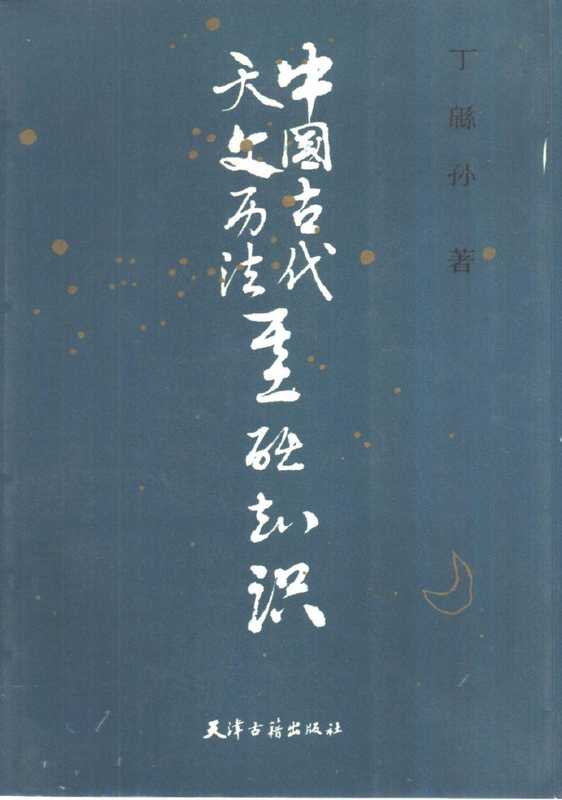 丁緜孙 著
中国古代
天文历法
基础知识
天津古籍出版社